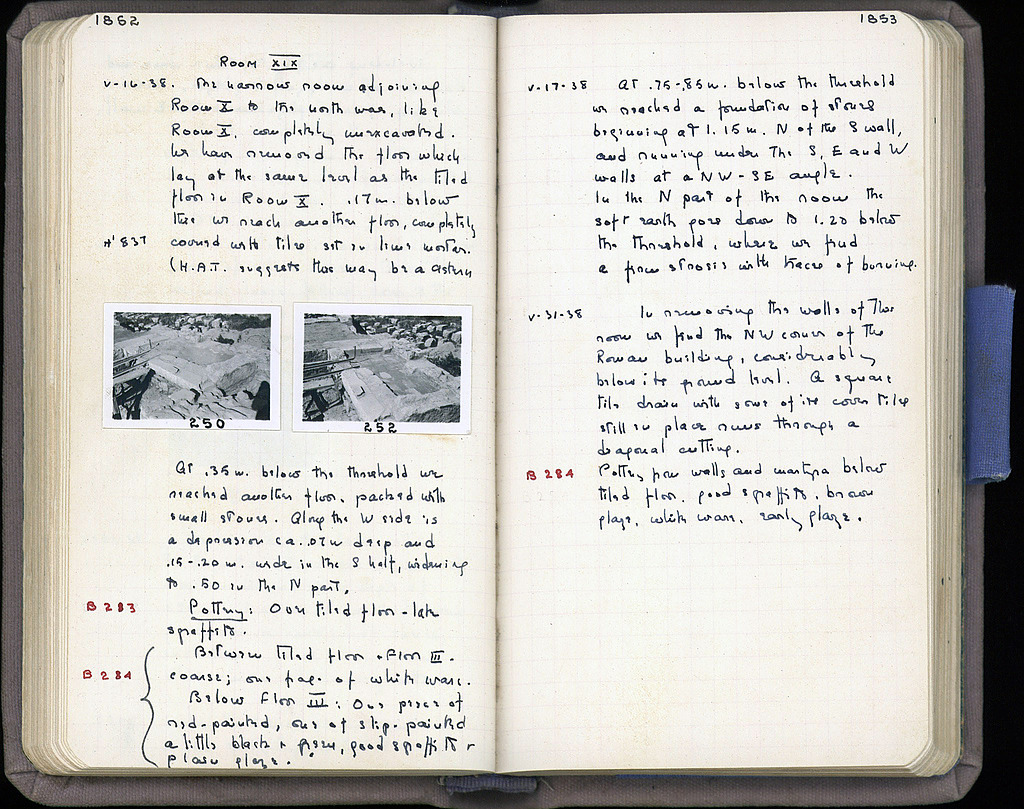 1852
ROOM XIX
V-16-38. The narrow room adjoining
Room X to the north was, like
Room X, completely unexcavated.
We have removed the floor which
lay at the same level as the tiled
floor in Room X. .17m. below
this we reach another floor, completely
#'837 covered with tiles set in lime mortar.
(H.A.T. suggests this may be a cistern
250
252
At .35 m. below the threshold we
reached another floor, packed with
small stones. Along the W side is
a depression ca. .07m deep and
.15-.20 m. wide in the S half, widening
to .50 in the N part.
B 283 Pottery: Over tiled floor - late
sgraffito.
Between tiled floor + Floor III.
B 284 coarse; one frag. of white ware.
Below Floor III: One piece of
red-painted, one of slip-painted
a little black + green, good sgraffito +
plain glaze.
1853
V-17-38 At .75-.85m. below the threshold
we reached a foundation of stones
beginning at 1.15 m. N of the S wall,
and running under the S, E and W
walls at a NW-SE angle.
In the N part of the room the
soft earth goes down to 1.20 below
the threshold, where we find
a firm strosis with traces of burning.
V-31-38 In removing the walls of this
room we find the NW corner of the
Roman building, considerably
below its ground level. A square
tile drain with some of its cover tiles
still in place runs through a
diagonal cutting.
B 284 Pottery from walls and martyra below
tiled floor. good sgraffito, brown
glaze, white ware, early glaze.